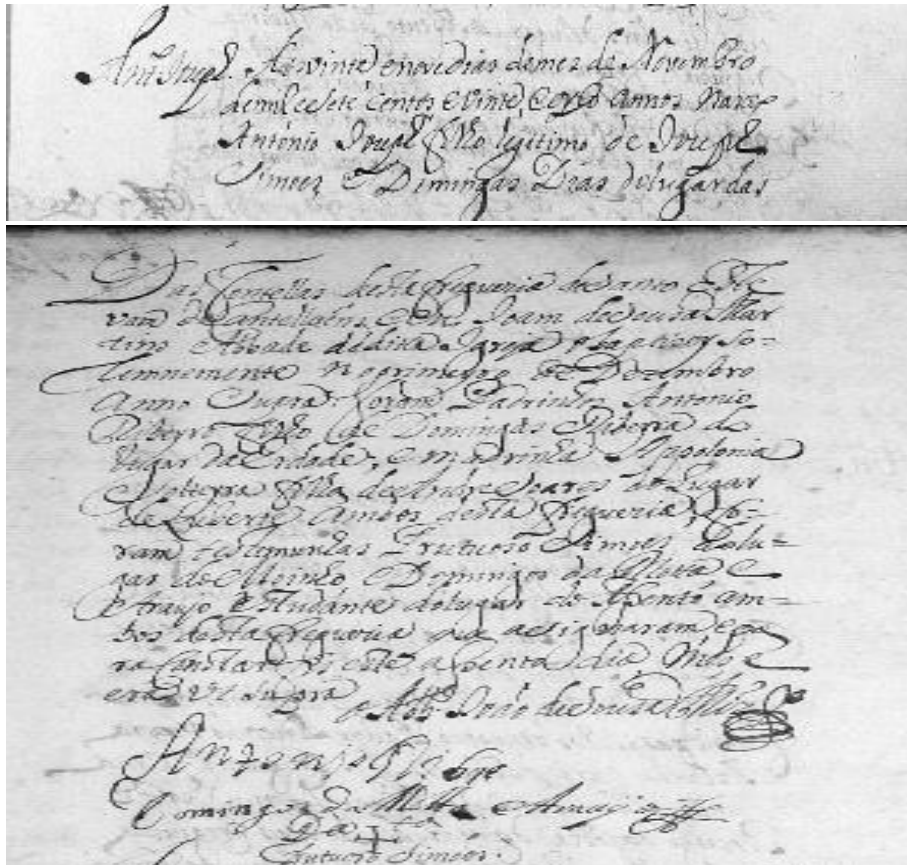 Antº Joseph. Aos vinte e nove dias do mez de Novembro
de mil e sete centos e vinte, e oyto annos nasceo
António Joseph filho legitimo de Joseph
Simoez e Domingas Dias do lugar das
Das Fontellas desta freguezia de Santo Este
vam de Cantelaens, e eu Joam de Souza Mar
tins Abbade da dita Igreja o baptizey so-
lemnemente no primeyro de Dezembro
anno supra. foram Padrinhos Antonio
Ribeyro filho de Domingas Ribeyra do
lugar da e madrinha Appolonia
solteyra filha de Andre Soares do lugar
de ambos desta freguezia, fo-
ram testemunhas Frutuoso Simoez do lu-
gar do Moinho e Domingos da Motta e
Araujo estudante do lugar do Assento am-
bos desta freguezia que assignaram e pa
ra constar fiz este assento dia mes e
era ut supra
o Abbe João de Souza Miz
Antonio Ribrº
Domingos da Motta e Araujo
De +
Frutuozo Simoez.